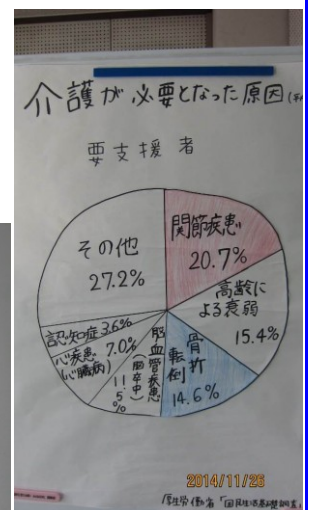 介護が必要となった原因(
要支援者
関節疾患
20.7%
高齢に
よる衰弱
15.4%
骨折
転倒
14.6%
脳血管疾患
(脳卒中)
11.5%
心疾患
(心臓病)
7.0%
認知症 3.6%
その他
27.2%
2014/11/26
厚生労働省「国民生活基礎調査」